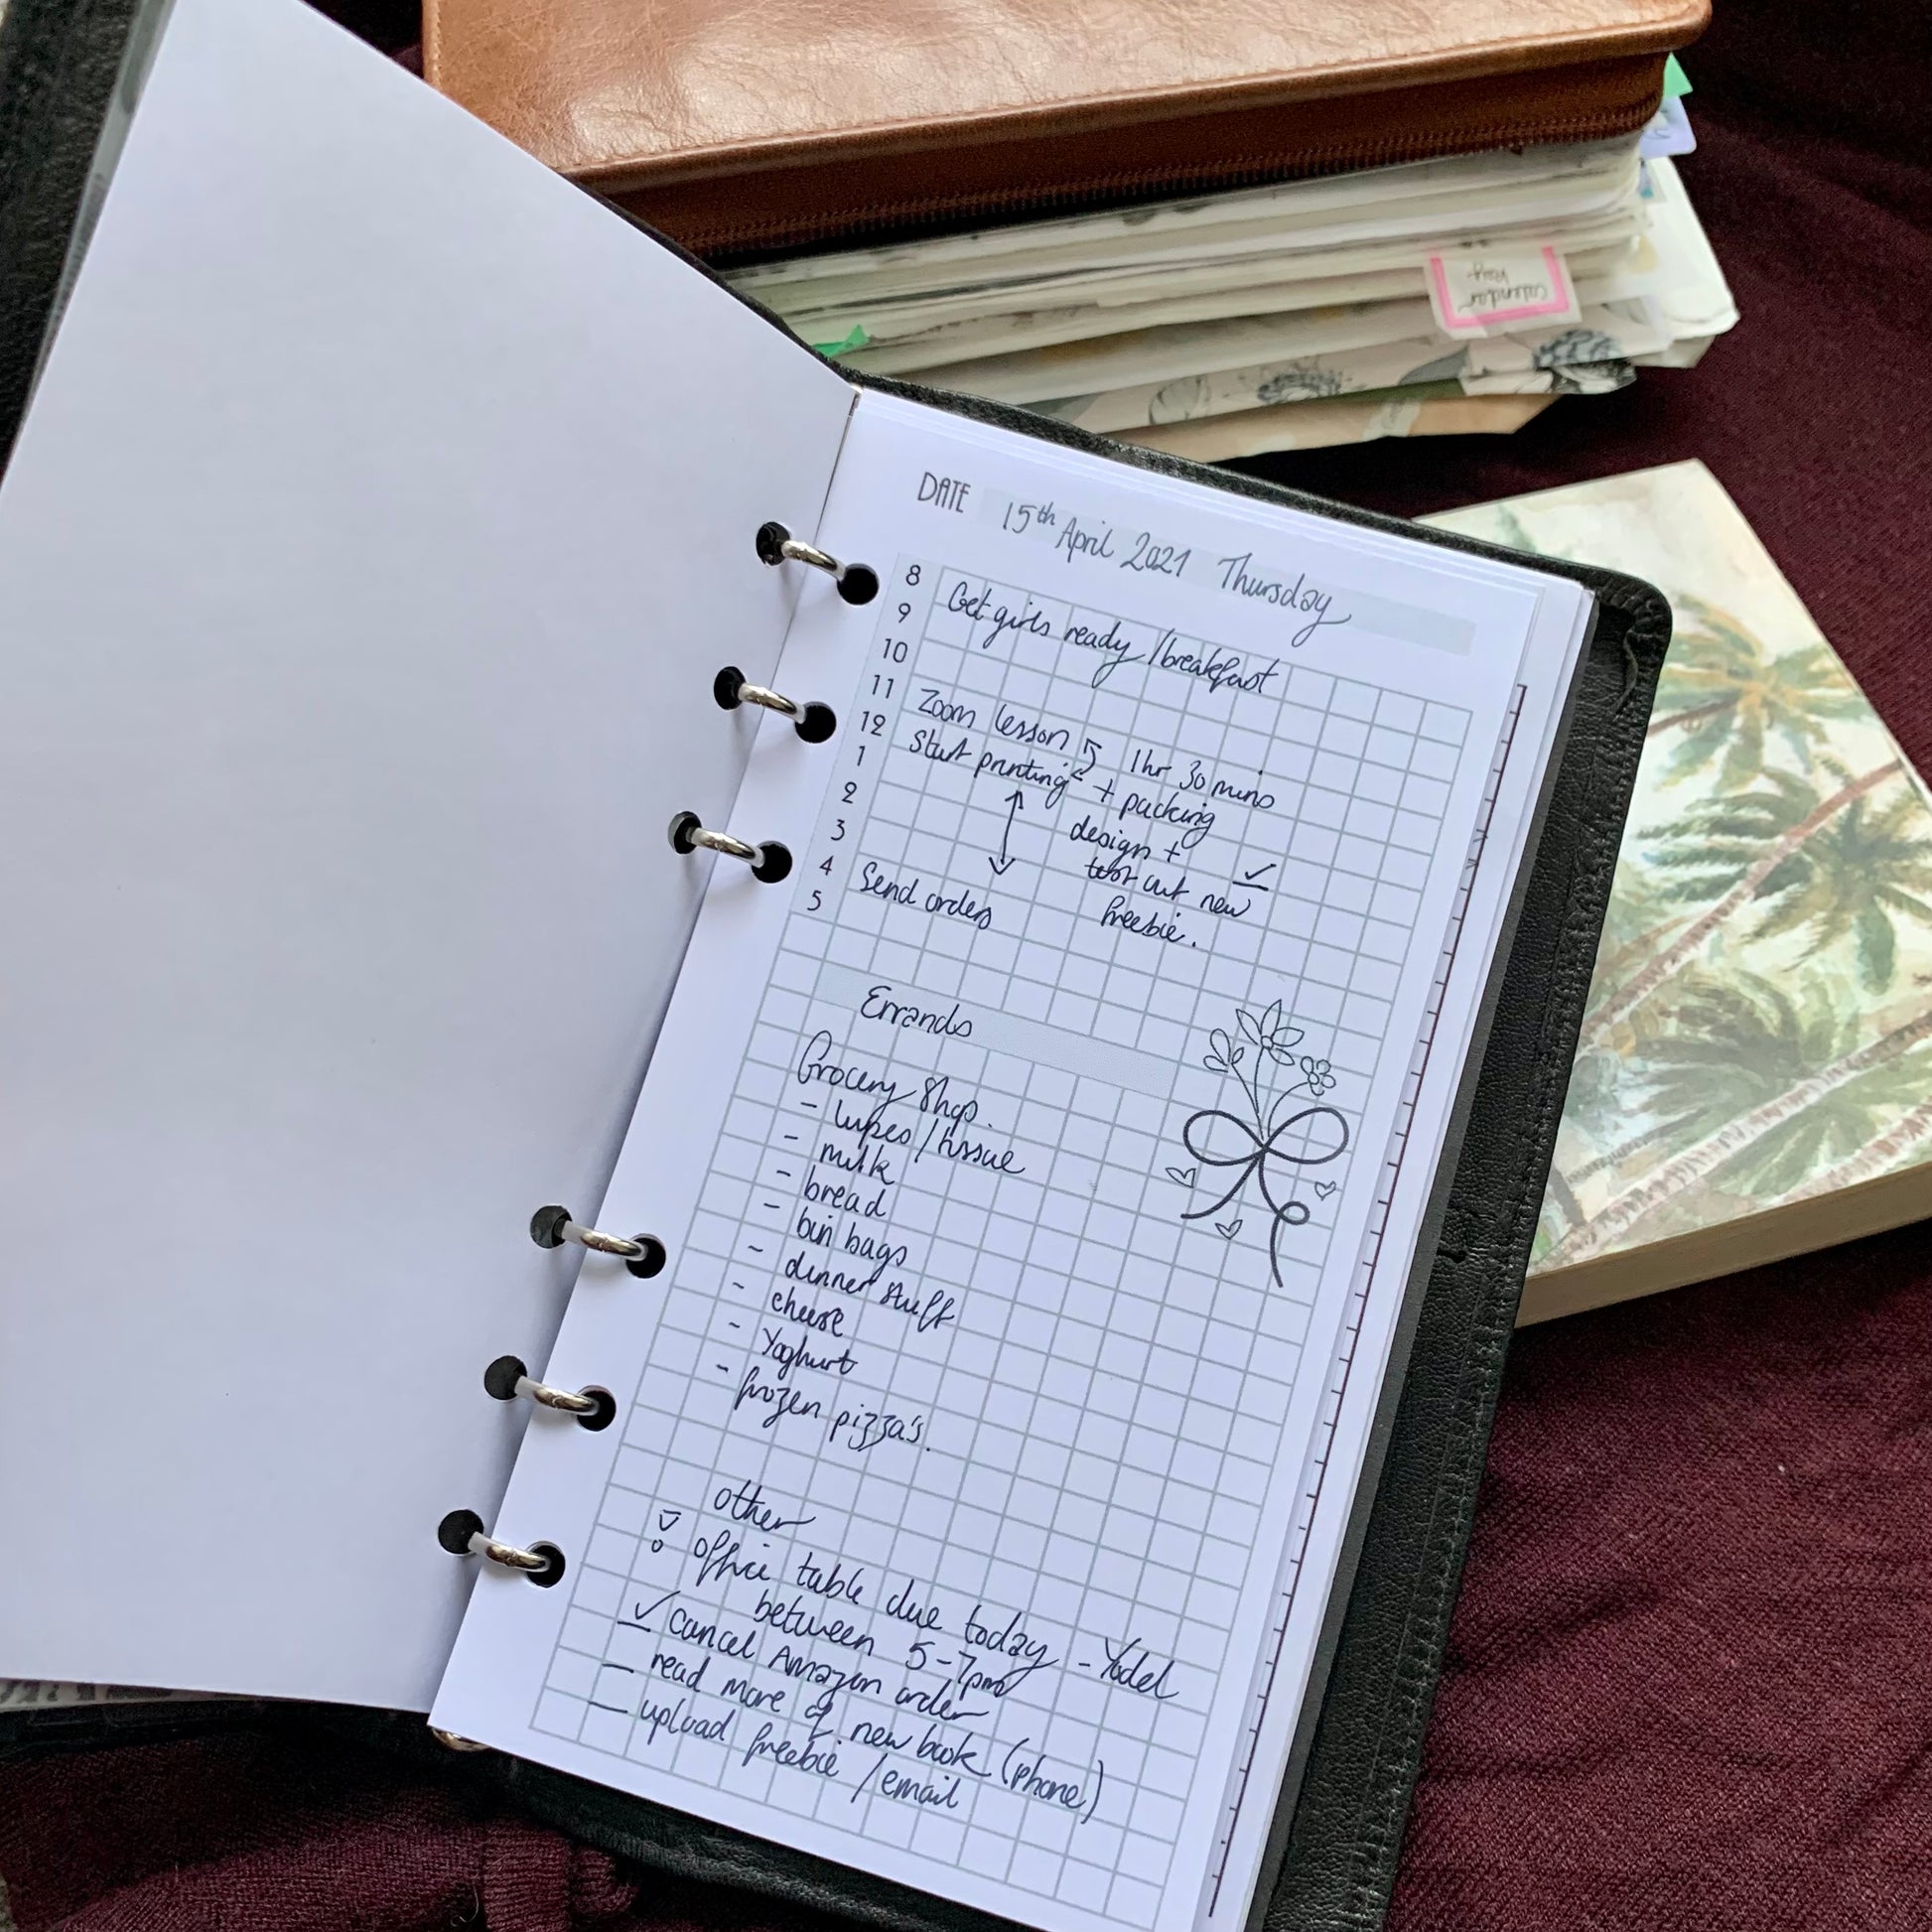 DATE 15th April 2021 Thursday
8 Get girls ready / breakfast
9
10
11 Zoom lesson 1hr 30 mins
12 Start printing + packing
1 design +
2 test out new
3 freebie.
4 Send orders
5
Errands
Grocery Shop
- wipes / tissue
- milk
- bread
- bin bags
- dinner stuff
- cheese
- Yoghurt
- frozen pizza's.
other
office table due today - Yodel
between 5-7pm
cancel Amazon order
— read more of new book (phone)
— upload freebie / email
calendar
key